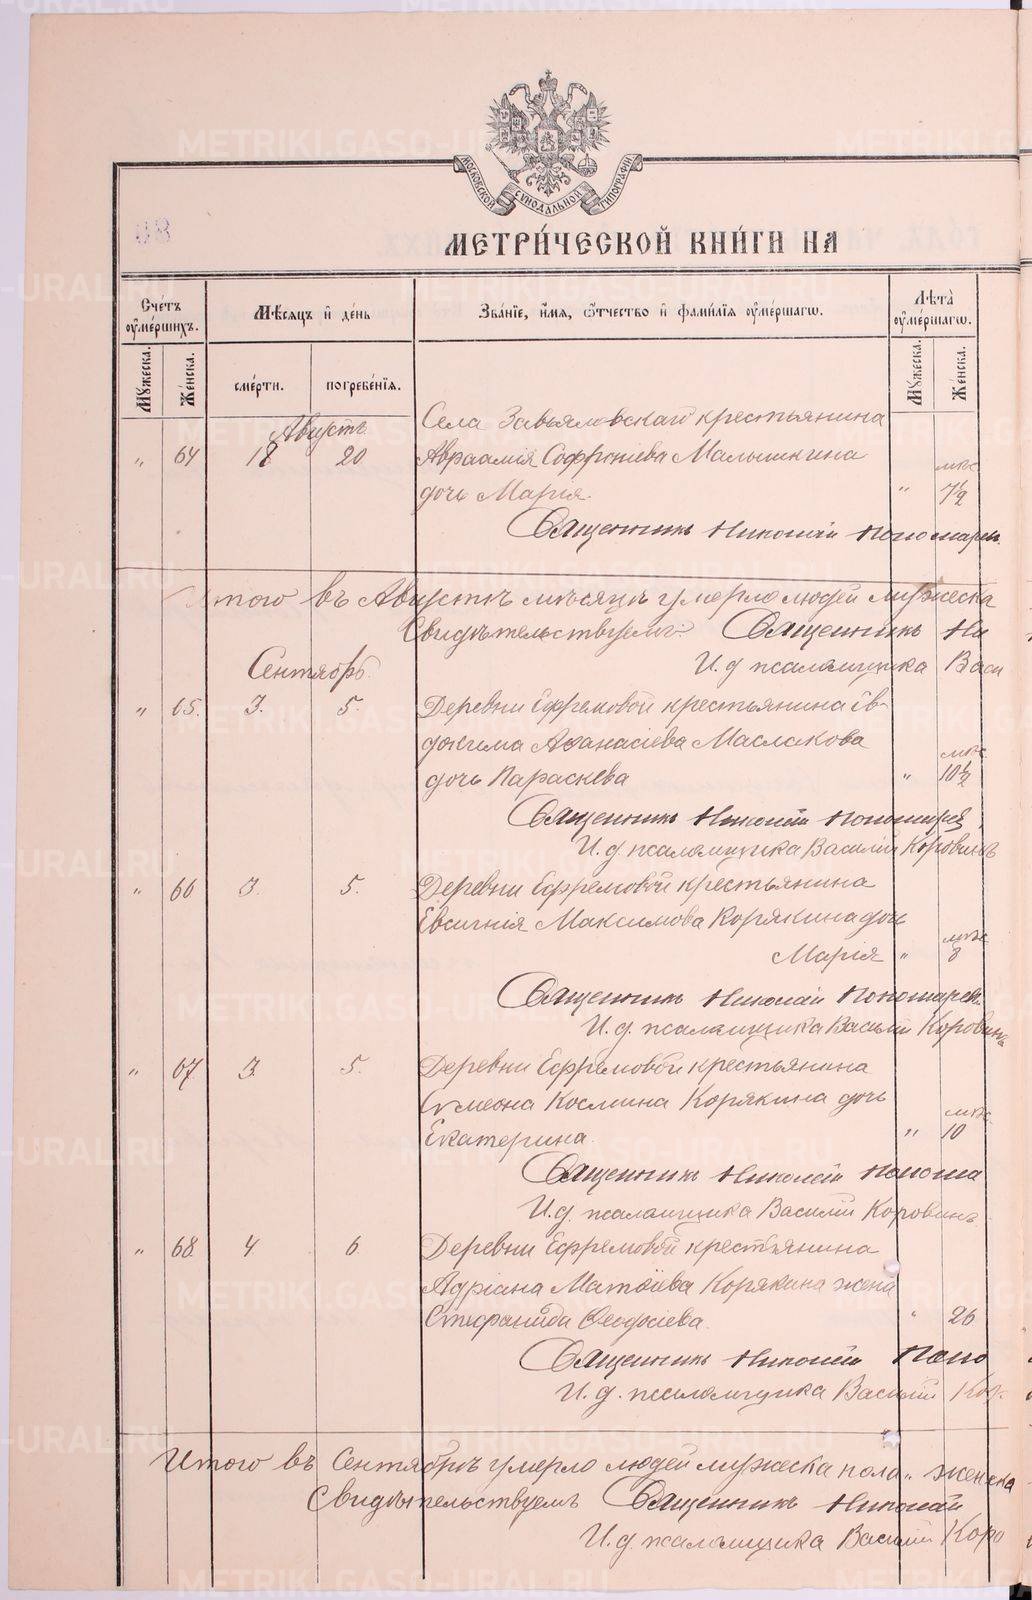 МОСКОВСКОЙ СѴНОДАЛЬНОЙ ТИПОГРАФІИ
МЕТРИ́ЧЕСКОЙ КНИ́ГИ НА
Сче́тъ ᲂу҆ме́ршихъ.
Мѣ́сяцъ и҆ де́нь
Зва́нїе, и҆́мя, ѻ҆́тчество и҆ фами́лїя ᲂу҆ме́ршагѡ.
Лѣ́та ᲂу҆ме́ршагѡ.
Мꙋ́жеска.
Же́нска.
сме́рти.
погребе́нїѧ.
Мꙋ́жеска.
Же́нска.
Августъ
Села Завьяловскаго крестьянина
„ 64 18 20 Авраамія Софронiева Малышкина мѣс
дочь Марія. „ 7½
Священникъ Николай Пономарев
Итого въ Августѣ мѣсяцѣ умерло людей мужеска
Свидѣтельствуемъ: Священникъ Ни
И. д. псаломщика Васи
Сентябрь.
„ 65. 3. 5. Деревни Ефремовой крестьянина Ев-
докима Аѳанасіева Маслакова мѣс
дочь Параскева „ 10½
Священникъ Николай Пономарев
И. д. псаломщика Василій Коровинъ
„ 66 3. 5. Деревни Ефремовой крестьянина
Евсигнія Максимова Корякина дочь мѣс
Марія „ 8
Священникъ Николай Пономарев
И. д. псаломщика Василій Коровинъ
„ 67 3. 5. Деревни Ефремовой крестьянина
Сѵмеона Космина Корякина дочь мѣс
Екатерина. „ 10
Священникъ Николай Понома
И. д. псаломщика Василій Коровинъ
„ 68. 4. 6. Деревни Ефремовой крестьянина
Адріана Матѳіева Корякина жена
Стефанида „ 26
Священникъ Николай Поно
И. д. псаломщика Василій Кор
Итого въ Сентябрѣ умерло людей мужеска пола „ женска
Свидѣтельствуемъ Священникъ Николай
И. д. псаломщика Василій Коро